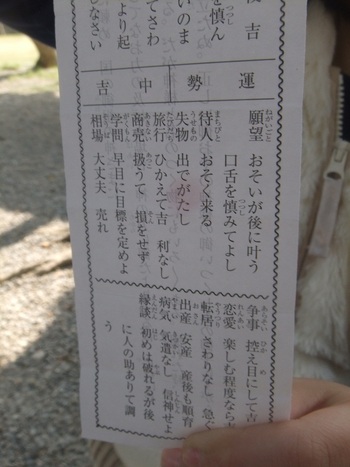 後吉
を慎ん
いのま
てさわ
より起
しなさい
運勢
中吉
願望 おそいが後に叶う
口舌を慎みてよし
待人 おそく来る
失物 出でがたし
旅行 ひかえて吉 利なし
商売 扱うて 損をせず
学問 早目に目標を定めよ
相場 大丈夫 売れ
争事 控え目にして吉
恋愛 楽しむ程度なら
転居 さわりなし 急ぐ
出産 安産 産後も順育
病気 気遣なし 信神せよ
縁談 初めは破れるが後
に人の助ありて調
う